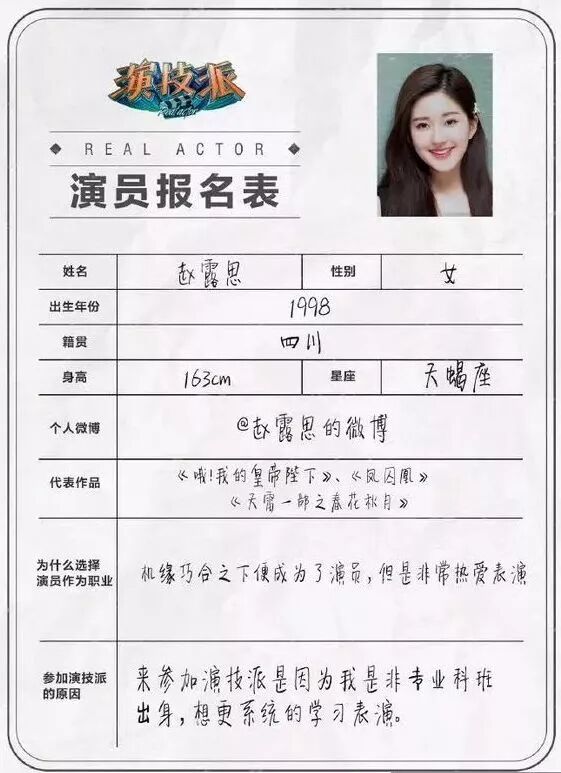 演技派
Real actor
REAL ACTOR
演员报名表
姓名 赵露思 性别 女
出生年份 1998
籍贯 四川
身高 163cm 星座 天蝎座
个人微博 @赵露思的微博
代表作品 《哦!我的皇帝陛下》、《凤囚凰》
《天雷一部之春花秋月》
为什么选择
演员作为职业
机缘巧合之下便成为了演员,但是非常热爱表演
参加演技派
的原因
来参加演技派是因为我是非专业科班
出身,想更系统的学习表演。